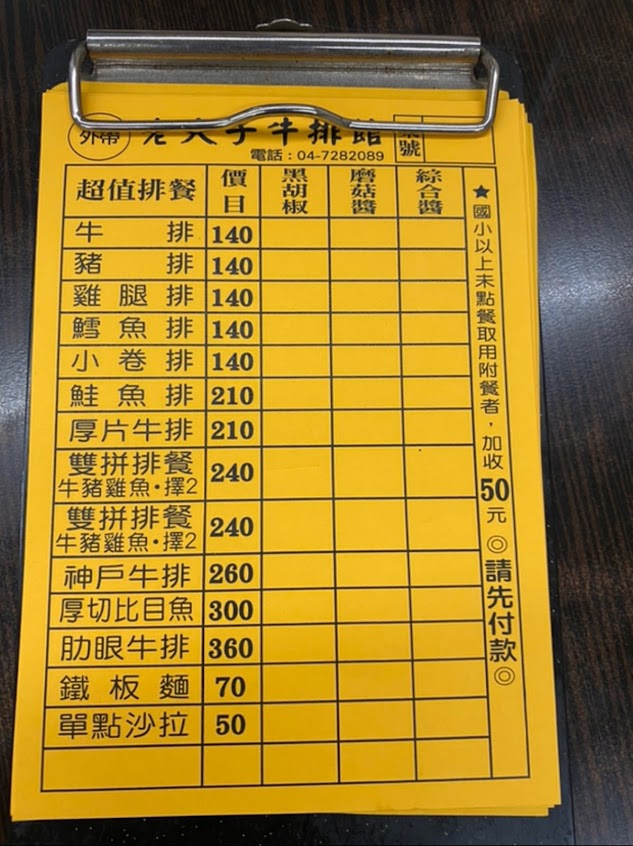 外帶
老夫子牛排館
電話：04-7282089
號
超值排餐 價目 黑胡椒 磨菇醬 綜合醬
牛排 140
豬排 140
雞腿排 140
鱈魚排 140
小卷排 140
鮭魚排 210
厚片牛排 210
雙拼排餐 240
牛豬雞魚・擇2
雙拼排餐 240
牛豬雞魚・擇2
神戶牛排 260
厚切比目魚 300
肋眼牛排 360
鐵板麵 70
單點沙拉 50
★國小以上未點餐取用附餐者，加收50元◎請先付款◎